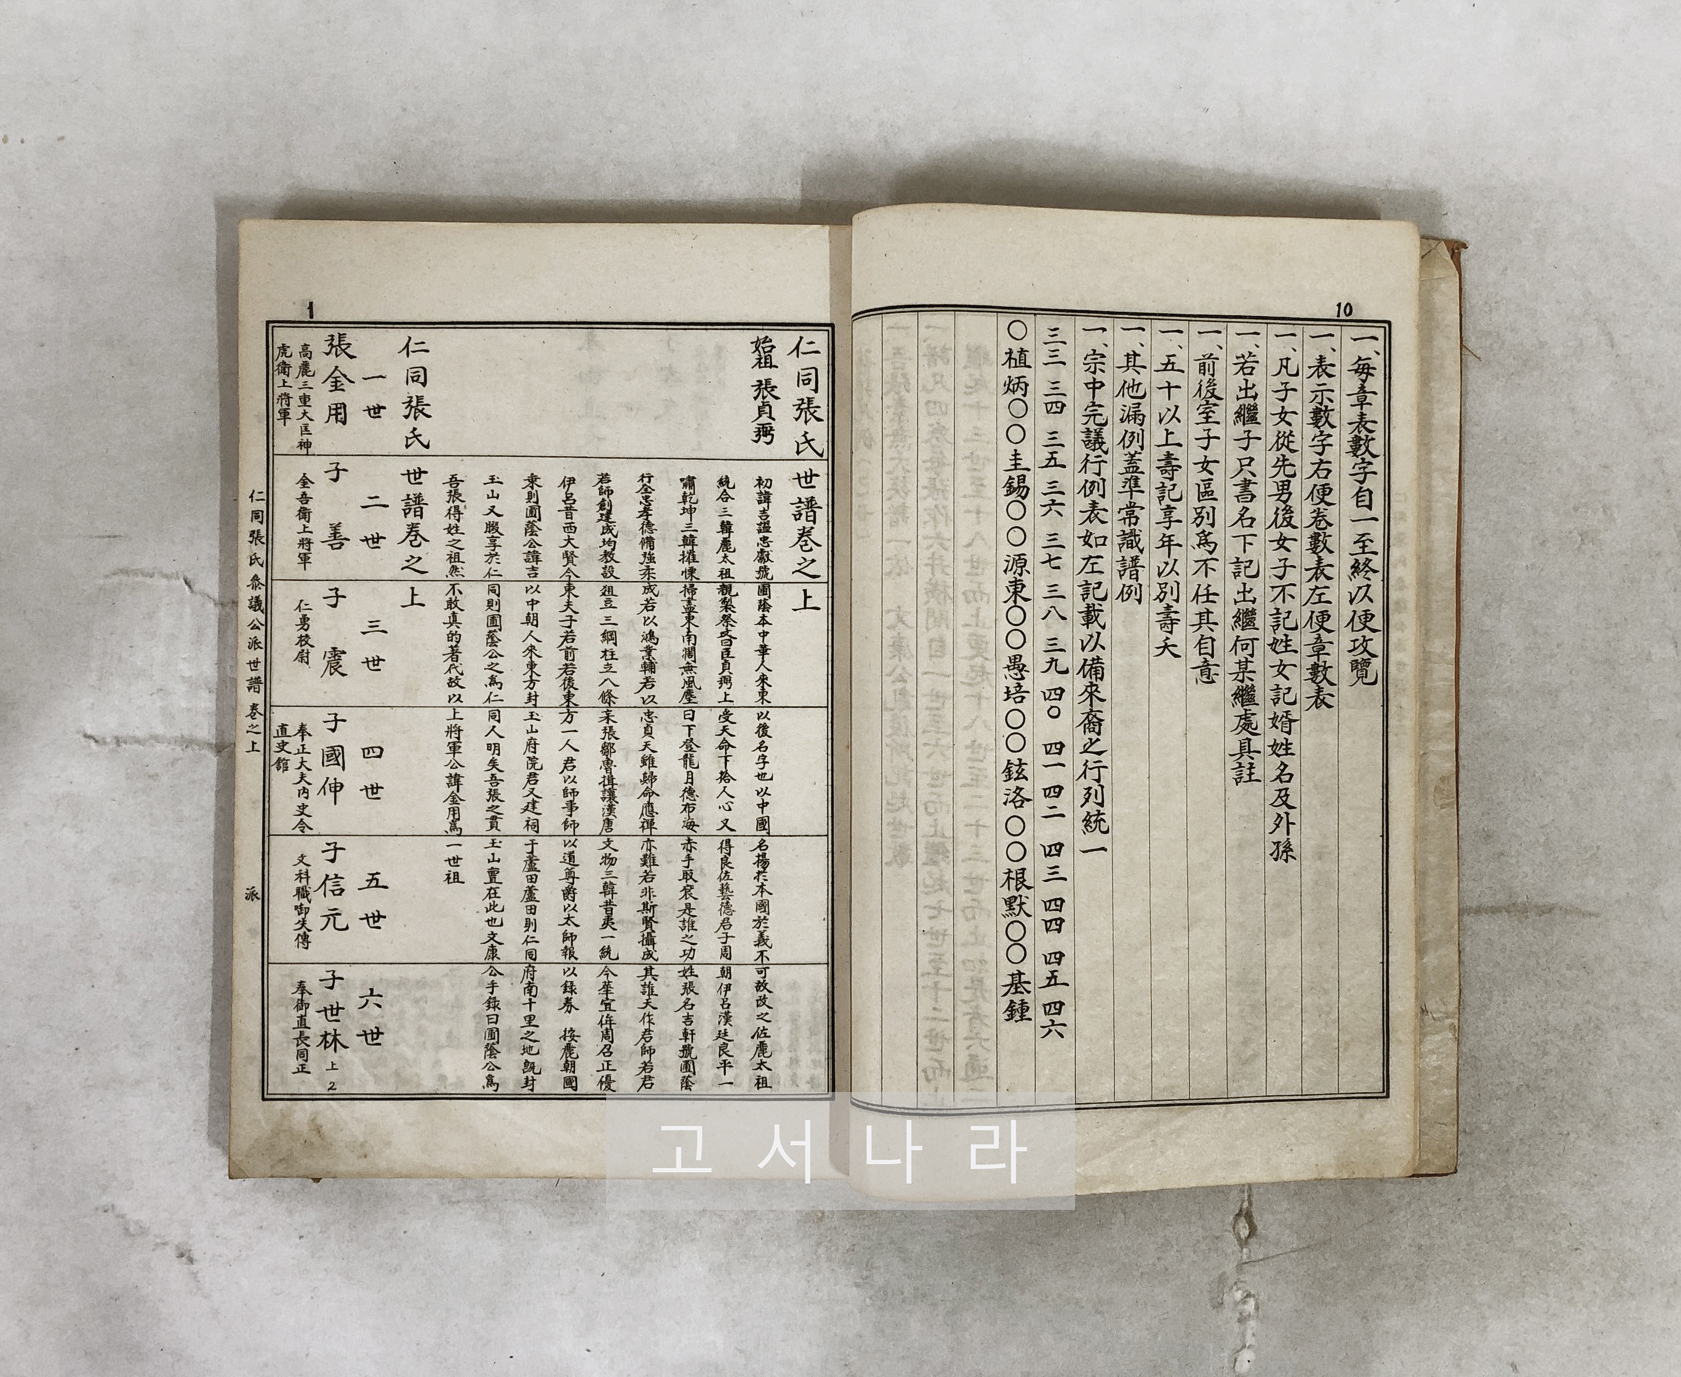 10
一、每章表數字自一至終以便攷覽
一、表示數字右便卷數表左便章數表
一、凡子女從先男後女子不記姓女記婿姓名及外孫
一、若出繼子只書名下記出繼何某繼處具註
一、前後室子女區別爲不任其自意
一、五十以上壽記享年以別壽夭
一、其他漏例蓋準常識譜例
一、宗中完議行例表如左記載以備來裔之行列統一
三三 三四 三五 三六 三七 三八 三九 四〇 四一 四二 四三 四四 四五 四六
〇植炳〇〇圭錫〇〇源東〇〇愚培〇〇鉉洛〇〇根默〇〇基鍾
1
仁同張氏世譜卷之上
始祖 張貞弼
初諱吉謚忠獻號圃蔭本中華人來東以後名字也以中國名揚於本國於義不可故改之佐麗太祖
統合三韓麗太祖親製祭文曰臣貞弼上受天命下拾人心又得良佐藝德君子周朝伊呂漢廷良平一
嘯乾坤三韓摧慄掃盡東南澗無風塵日下登龍月德布海赤手取袞是誰之功姓張名吉軒號圃蔭
行全忠孝德備強柔成若以鴻業輔君以忠貞天難歸命應禪亦難若非斯賢攝成其誰夫作君師若君
若師創建成均教設俎豆三綱柱立八條來張鄒魯揖讓漢唐文物三韓昔夷一統今華宜侔周召正優
伊呂昔西大賢今東夫子若前若後東方一人君以師事師以道尊爵以太師報以錄券 按麗朝國
乘則圃蔭公諱吉以中朝人來東方封玉山府院君又建祠于蘆田蘆田則仁同府南十里之地旣封
玉山又腏享於仁同則圃蔭公之爲仁同人明矣吾張之貫玉山亶在此也文康公手錄曰圃蔭公爲
吾張得姓之祖然不敢真的著代故以上將軍公諱金用爲一世祖
仁同張氏世譜卷之上
一世 二世 三世 四世 五世 六世
張金用 子善 子震 子國伸 子信元 子世林 上2
高麗三重大匡神 金吾衛上將軍 仁勇校尉 奉正大夫內史令 文科職啣失傳 奉御直長同正
虎衛上將軍 直史館
仁同張氏叅議公派世譜 卷之上 派
고서나라